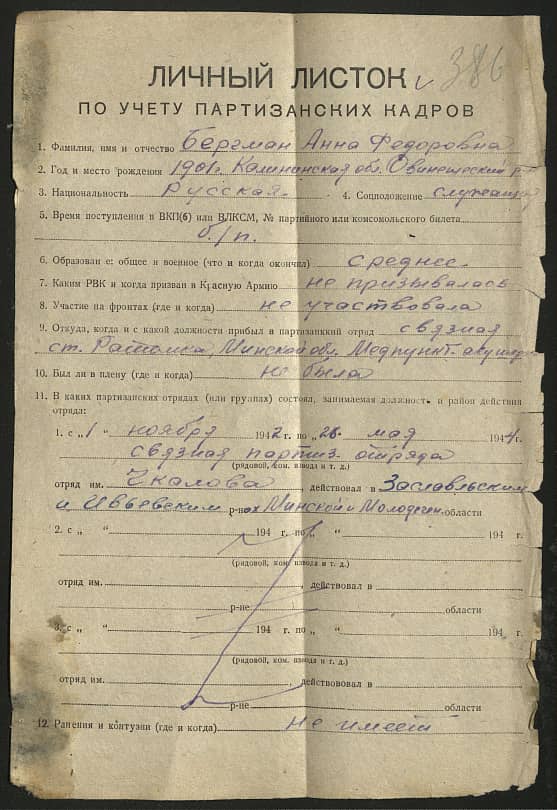 ЛИЧНЫЙ ЛИСТОК
386
ПО УЧЕТУ ПАРТИЗАНСКИХ КАДРОВ
1. Фамилия, имя и отчество Бергман Анна Федоровна
2. Год и место рождения 1901г. Калининская обл. Овинищский р-н
3. Национальность русская. 4. Соцположение служащая
5. Время поступления в ВКП(б) или ВЛКСМ, № партийного или комсомольского билета
б/п.
6. Образован е: общее и военное (что и когда окончил) среднее
7. Каким РВК и когда призван в Красную Армию не призывалась
8. Участие на фронтах (где и когда) не участвовала
9. Откуда, когда и с какой должности прибыл в партизанкий отряд связная
ст. Ратомка, Минской обл. Медпункт. акушерка
10. Был ли в плену (где и когда) не была
11. В каких партизанских отрядах (или группах) состоял, занимаемая должность и район действия
отряда:
1. с „1" ноября 1942 г. по „28" мая 1944 г.
связная партиз. отряда
(рядовой, ком. взвода и т. д.)
отряд им. Чкалова, действовал в Заславльским
и Ивьевским р-нах Минской и Молодечн. области
2. с „ " 194 г. по „ " 194 г.
(рядовой, ком. взвода и т. д.)
отряд им. , действовал в
р-не области
3. с „ " 194 г. по „ " 194 г.
(рядовой, ком. взвода и т. д.)
отряд им. , действововал в
р-не области
12. Ранения и контузии (где и когда) не имеет